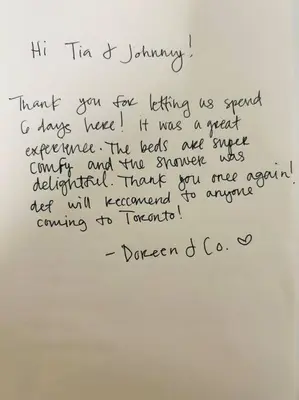 Hi Tia & Johnny!
Thank you for letting us spend
6 days here! It was a great
experience. The beds are super
comfy and the shower was
delightful. Thank you once again!
def will reccomend to anyone
coming to Toronto!
- Doreen & Co. ♡